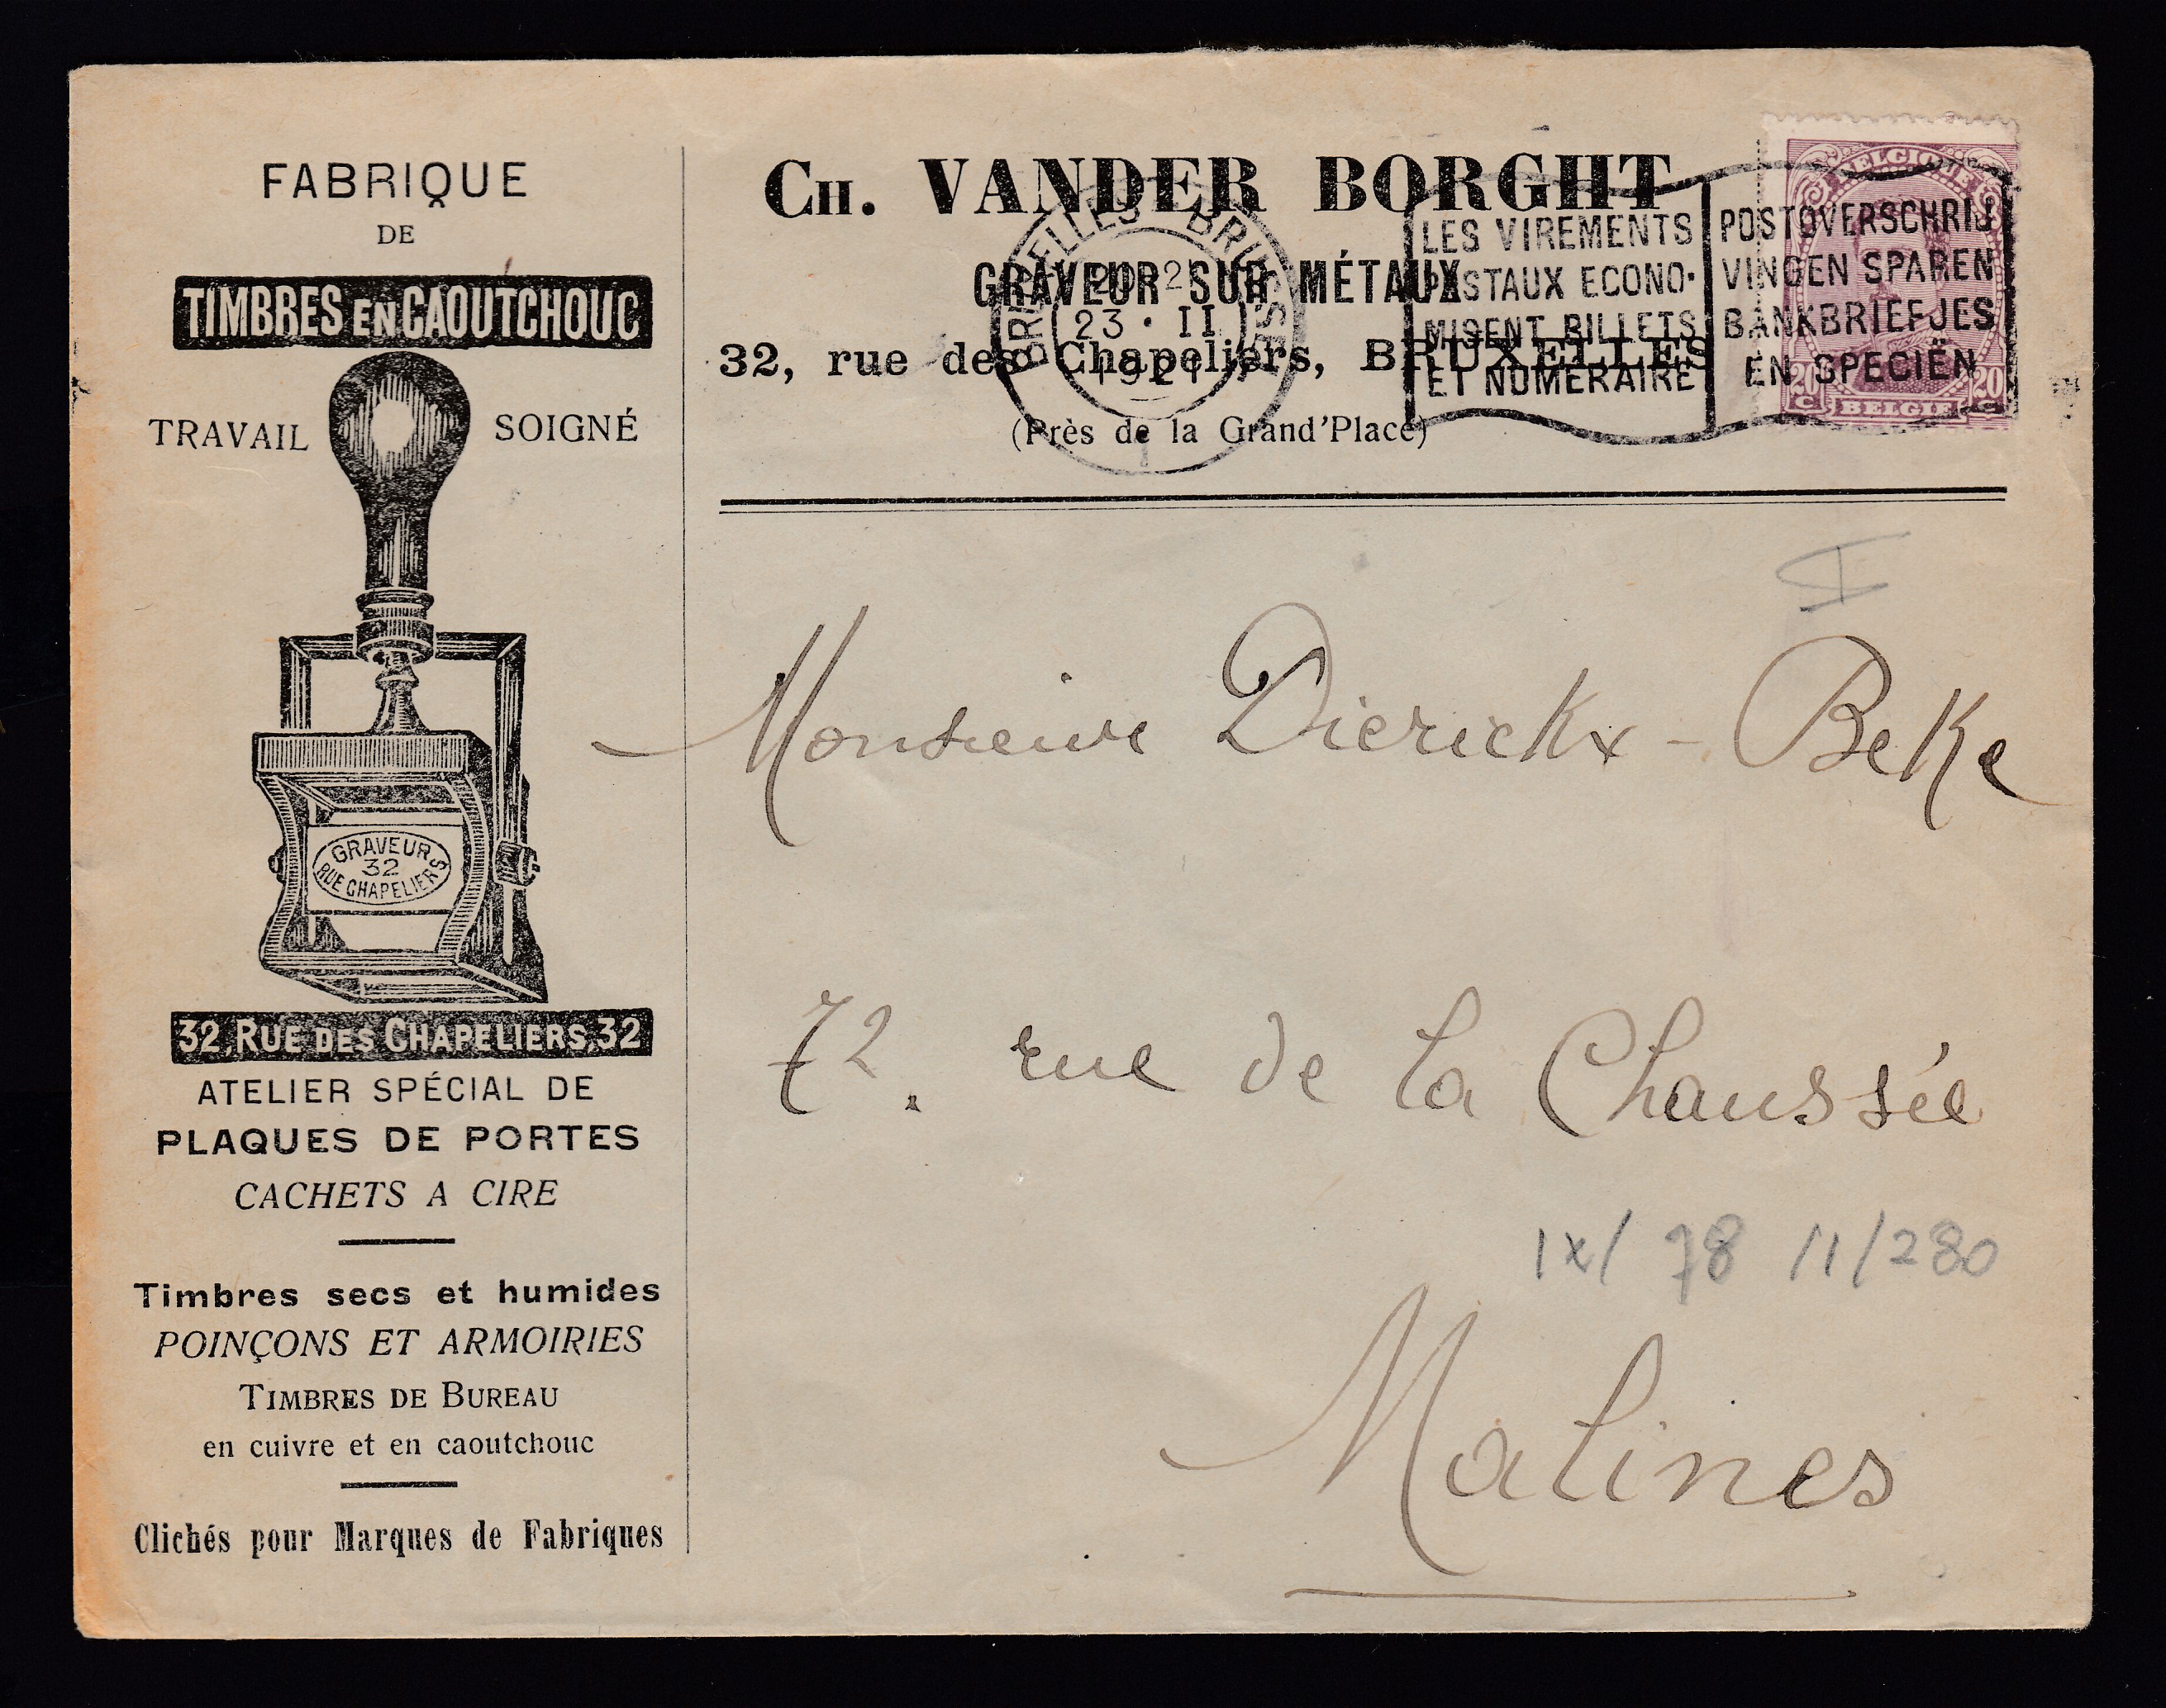 FABRIQUE
DE
TIMBRES EN CAOUTCHOUC
TRAVAIL SOIGNÉ
GRAVEUR
32
RUE CHAPELIERS
32, RUE DES CHAPELIERS, 32
ATELIER SPÉCIAL DE
PLAQUES DE PORTES
CACHETS A CIRE
Timbres secs et humides
POINÇONS ET ARMOIRIES
TIMBRES DE BUREAU
en cuivre et en caoutchouc
Clichés pour Marques de Fabriques
CH. VANDER BORGHT
GRAVEUR SUR MÉTAUX
32, rue des Chapeliers, BRUXELLES
(Près de la Grand'Place)
BRUXELLES BRUSSEL
23 · II
1921
LES VIREMENTS
POSTAUX ECONO-
MISENT BILLETS
ET NUMERAIRE
POSTOVERSCHRIJ
VINGEN SPAREN
BANKBRIEFJES
EN SPECIËN
BELGIQUE
20 20
C C
BELGIE
Monsieur Dierickx - Beke
72. rue de la Chaussée
1x/ 78 11/280
Malines